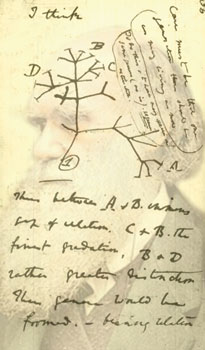 I think
Case must be that one
generation then should be
as many living as now
To do this & to have many species in
same genus (as is)
requires extinction
B
D
C
A
1
Thus between A & B. immens
gap of relation. C & B. the
finest gradation, B & D
rather greater distinction
Thus genera would be
formed. — bearing relation